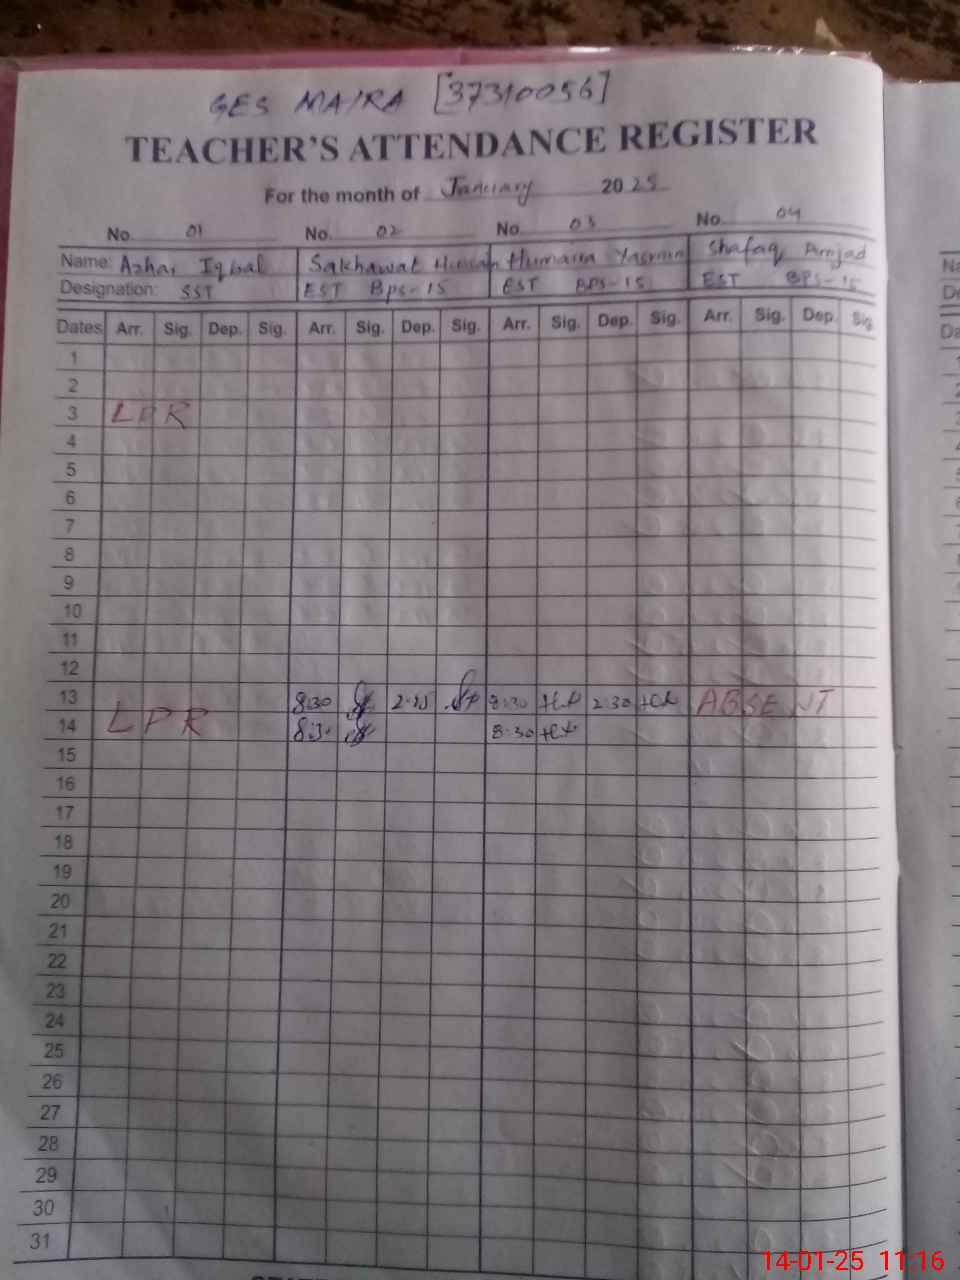 GES MAIRA [37310056]
TEACHER'S ATTENDANCE REGISTER
For the month of January 2025
No. 01 No. 02 No. 03 No. 04
Name: Azhar Iqbal Sakhawat Hussan Humaira Yasmin Shafaq Amjad
Designation: SST EST Bps-15 EST BPS-15 EST BPS-15
Dates Arr. Sig. Dep. Sig. Arr. Sig. Dep. Sig. Arr. Sig. Dep. Sig. Arr. Sig. Dep. Sig.
1
2
3 LPR
4
5
6
7
8
9
10
11
12
13 8:30 8:30 2:30 ABSENT
LPR
14 8:30 8:30
15
16
17
18
19
20
21
22
23
24
25
26
27
28
29
30
31
14-01-25 11:16